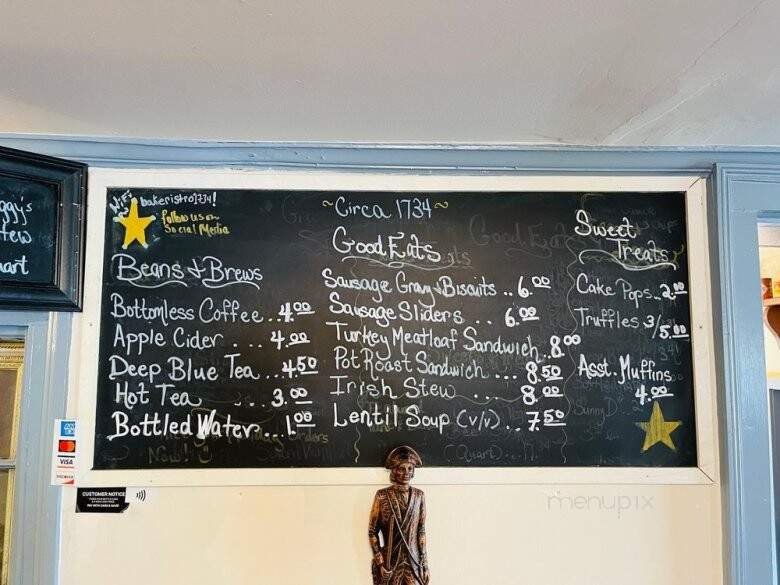 WiFi
bakeristro1734!
follow us on
Social Media
~Circa 1734~
Beans & Brews
Bottomless Coffee..4.00
Apple Cider . . . 4.00
Deep Blue Tea ...4.50
Hot Tea ... 3.00
Bottled Water... 1.00
Good Eats
Sausage Gravy & Biscuits .. 6.00
Sausage Sliders ... 6.00
Turkey Meatloaf Sandwich..8.00
Pot Roast Sandwich .... 8.50
Irish Stew .... 8.00
Lentil Soup (v/v) .. 7.50
Sweet
Treats
Cake Pops..2.00
Truffles 3/5.00
Asst. Muffins
4.00
tew
art
VISA
DISCOVER
CUSTOMER NOTICE
menupix